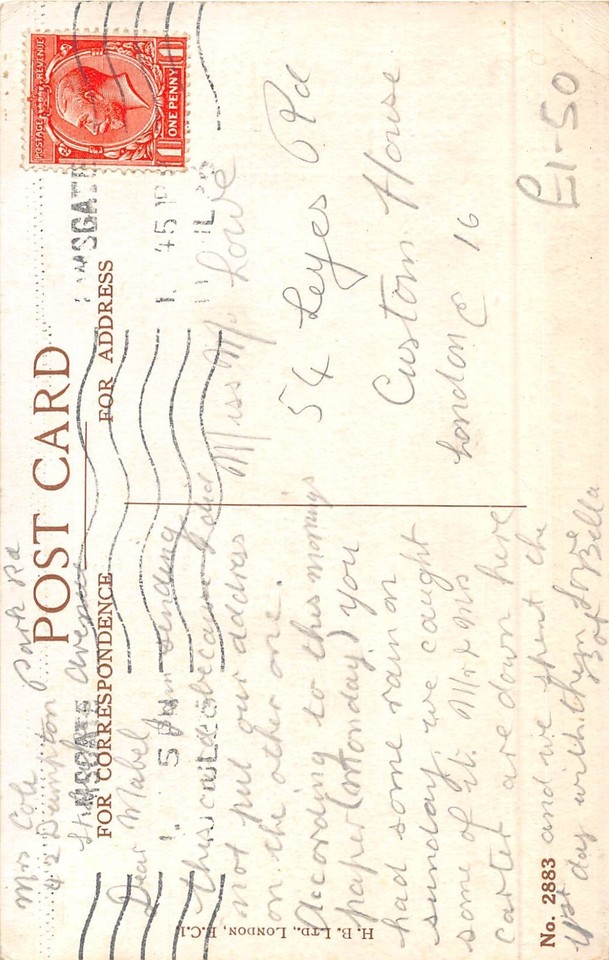 Mrs Cole
42 Dumpton Park Rd
Avenue
POST CARD
FOR CORRESPONDENCE
FOR ADDRESS
POSTAGE REVENUE
ONE PENNY
Dear Mabel
I am sending
this card because I did
not put our address
on the other one.
According to this mornings
paper (Monday) you
had some rain on
sunday, we caught
some of it. Mr & Mrs
Carter are down here
and we spent the
1st day with them Love
Bella
Miss M. Lowe
54 Leyes Rd
Custom House
London E 16
£1-50
No. 2883
H. B. LTD., LONDON, E.C.1.